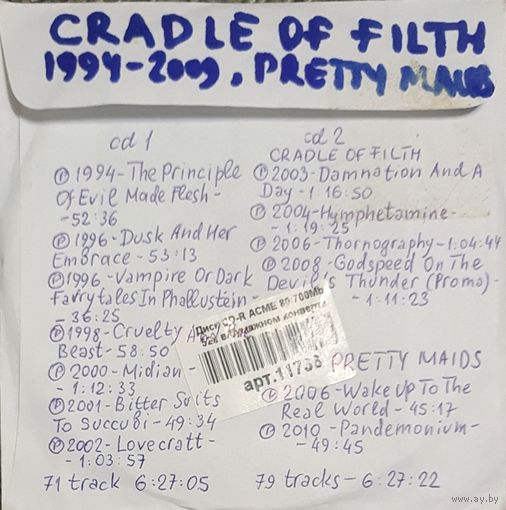 CRADLE OF FILTH
1994-2009, PRETTY MAIDS
cd 1
Ⓟ 1994-The Principle
Of Evil Made Flesh-
-52:36
Ⓟ 1996-Dusk And Her
Embrace-53:13
Ⓟ 1996-Vampire Or Dark
Fairytales In Phallustein-
-36:25
Ⓟ 1998-Cruelty A
Beast-58:50
Ⓟ 2000-Midian-
-1:12:33
Ⓟ 2001-Bitter Suits
To Succubi-49:34
Ⓟ 2002-Lovecraft-
-1:03:57
71 track 6:27:05
cd 2
CRADLE OF FILTH
Ⓟ 2003-Damnation And A
Day-1:16:50
Ⓟ 2004-Nymphetamine-
-1:19:25
Ⓟ 2006-Thornography-1:04:44
Ⓟ 2008-Godspeed On The
Devil's Thunder (Promo)-
-1:11:23
PRETTY MAIDS
Ⓟ 2006-Wake Up To The
Real World-45:17
Ⓟ 2010-Pandemonium-
-49:45
79 tracks-6:27:22
Диск CD-R ACME 80/700Mb
52x в бумажном конверте
арт.11738
www.ay.by